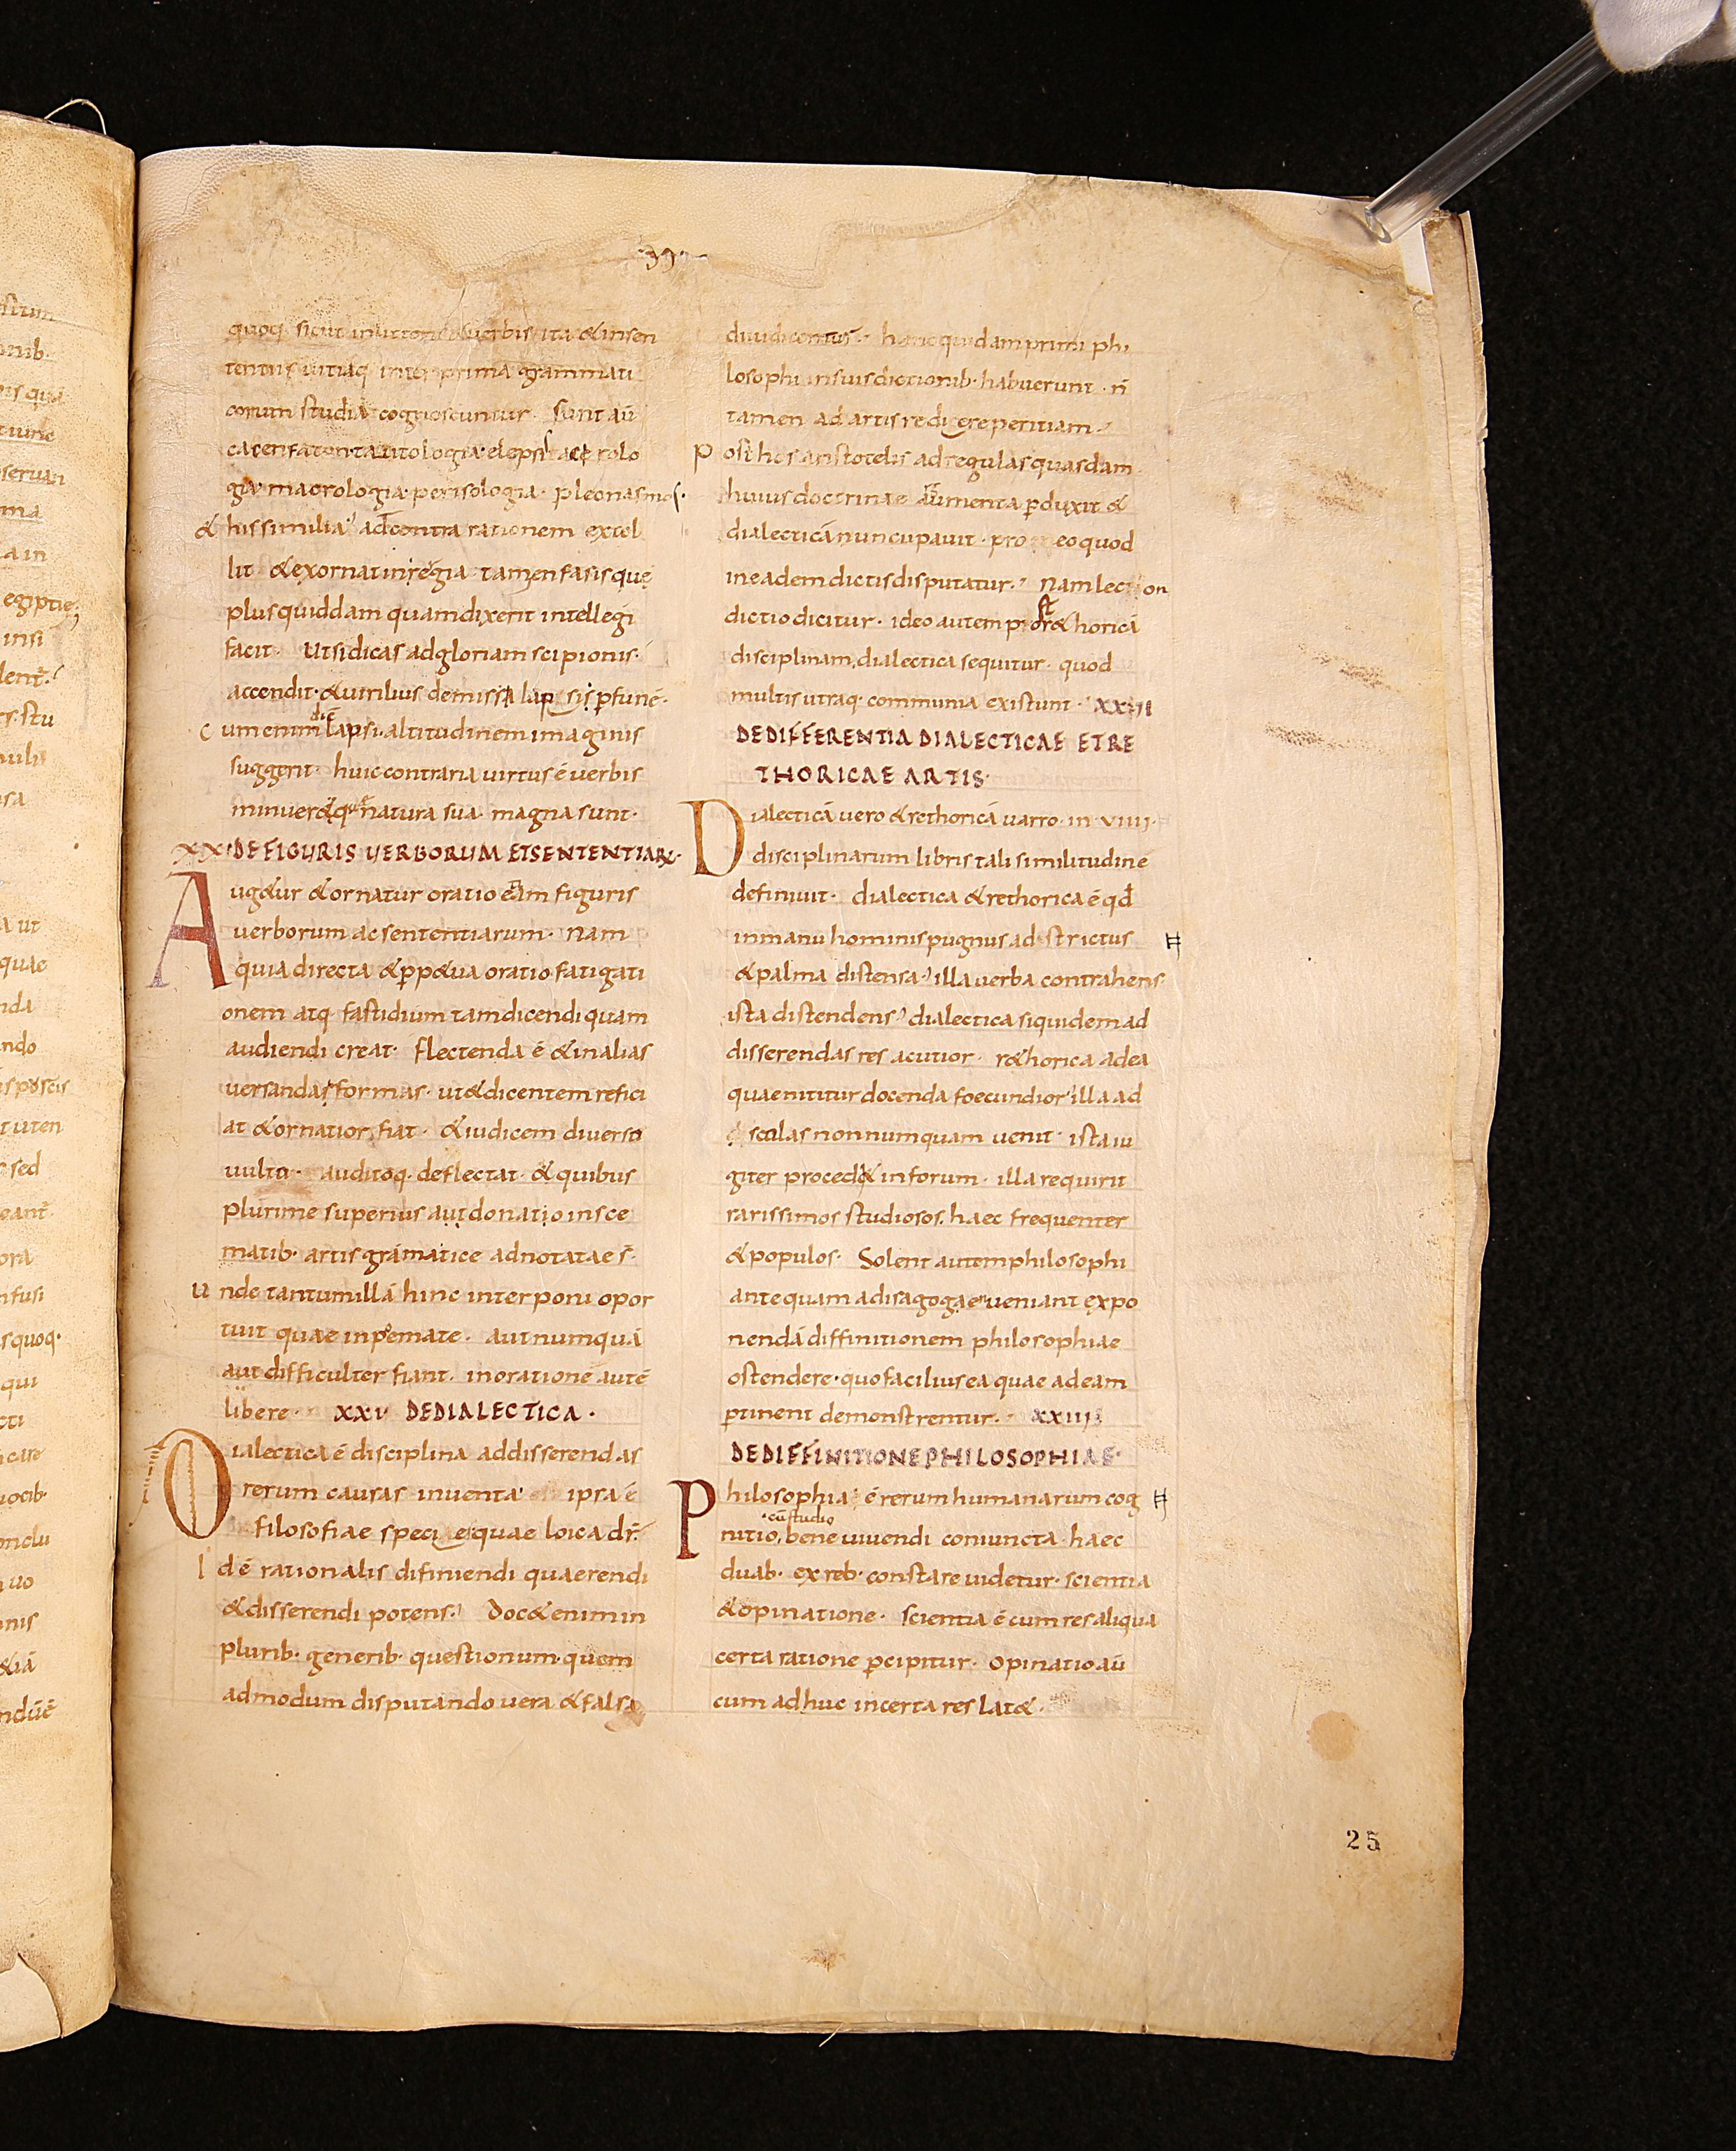 39
quoq; sicut in uitton uerbis ita & insen
tentiis uitiaq; inter prima grammati
corum studia cognoscuntur. Sunt aū
cacenfaton tautologia elepsis acerolo
gia macrologia perisologia pleonasmos.
& his similia ad contra rationem extol
lit & exornat inregia tamen fasis quę
plus quiddam quam dixerit intellegi
facit. Ut si dicas ad gloriam scipionis
accendit & utrilius demissa lapsis p funē.
Cum enim dic̄ lapsi altitudinem imaginis
suggerit. huic contraria uirtus ē uerbis
minuere q natura sua magna sunt.
XX DE FIGURIS UERBORUM ET SENTENTIARŪ.
Augetur & ornatur oratio etiam figuris
uerborum ac sententiarum. Nam
quia directa & ppetua oratio fatigati
onem atq; fastidium tam dicendi quam
audiendi creat. flectenda ē & in alias
uersandas formas. ut & dicentem refici
at & ornatior fiat. & iudicem diuerso
uultu auditoq; deflectat. & quibus
plurime superius aut donatio in sce
matib; artis grāmatice adnotatae s̄.
Unde tantum illā hinc interponi opor
tuit quae in poemate. aut numquā
aut difficulter fiant. in oratione autē
libere. XXI DE DIALECTICA.
Dialectica ē disciplina ad disserendas
rerum causas inuenta ipsa ē
filosofiae species quae loica dr̄.
Id ē rationalis difiniendi quaerendi
& disserendi potens. Docet enim in
plurib; generib; questionum quem
admodum disputando uera & falsa
diiudicentur. hanc quidam primi phi
losophi in suis dictionib; habuerunt. n̄
tamen ad artis redigere peritiam.
Post hos aristotelis ad regulas quasdam
huius doctrinae argumenta pduxit &
dialecticā nuncupauit. pro eo quod
in ea dem dictis disputatur. Nam lecton
dictio dicitur. ideo autem post rethoricā
disciplinam dialectica sequitur. quod
multis utraq; communia existunt. XXIII
DE DIFFERENTIA DIALECTICAE ET RE
THORICAE ARTIS.
Dialecticā uero & rethoricā uarro in VIIII.
disciplinarum libris tali similitudine
definiuit. dialectica & rethorica ē qđ
in manu hominis pugnus adstrictus
& palma distensa. illa uerba contrahens
ista distendens. dialectica siquidem ad
disserendas res acutior. rethorica ad ea
quae nititur docenda foecundior. illa ad
scolas nonnumquam uenit. ista iu
giter procedit in forum. illa requirit
rarissimos studiosos. haec frequenter
& populos. Solent autem philosophi
antequam ad isagogaen ueniant expo
nendā diffinitionem philosophiae
ostendere. quo facilius ea quae ad eam
ptinent demonstrentur. XXIIII
DE DIFFINITIONE PHILOSOPHIAE.
Philosophia ē rerum humanarum cog
cū studio
nitio, bene uiuendi coniuncta. haec
duab; ex reb; constare uidetur. scientia
& opinatione. scientia ē cum res aliqua
certa ratione pcipitur. Opinatio aū
cum adhuc incerta res latet.
25